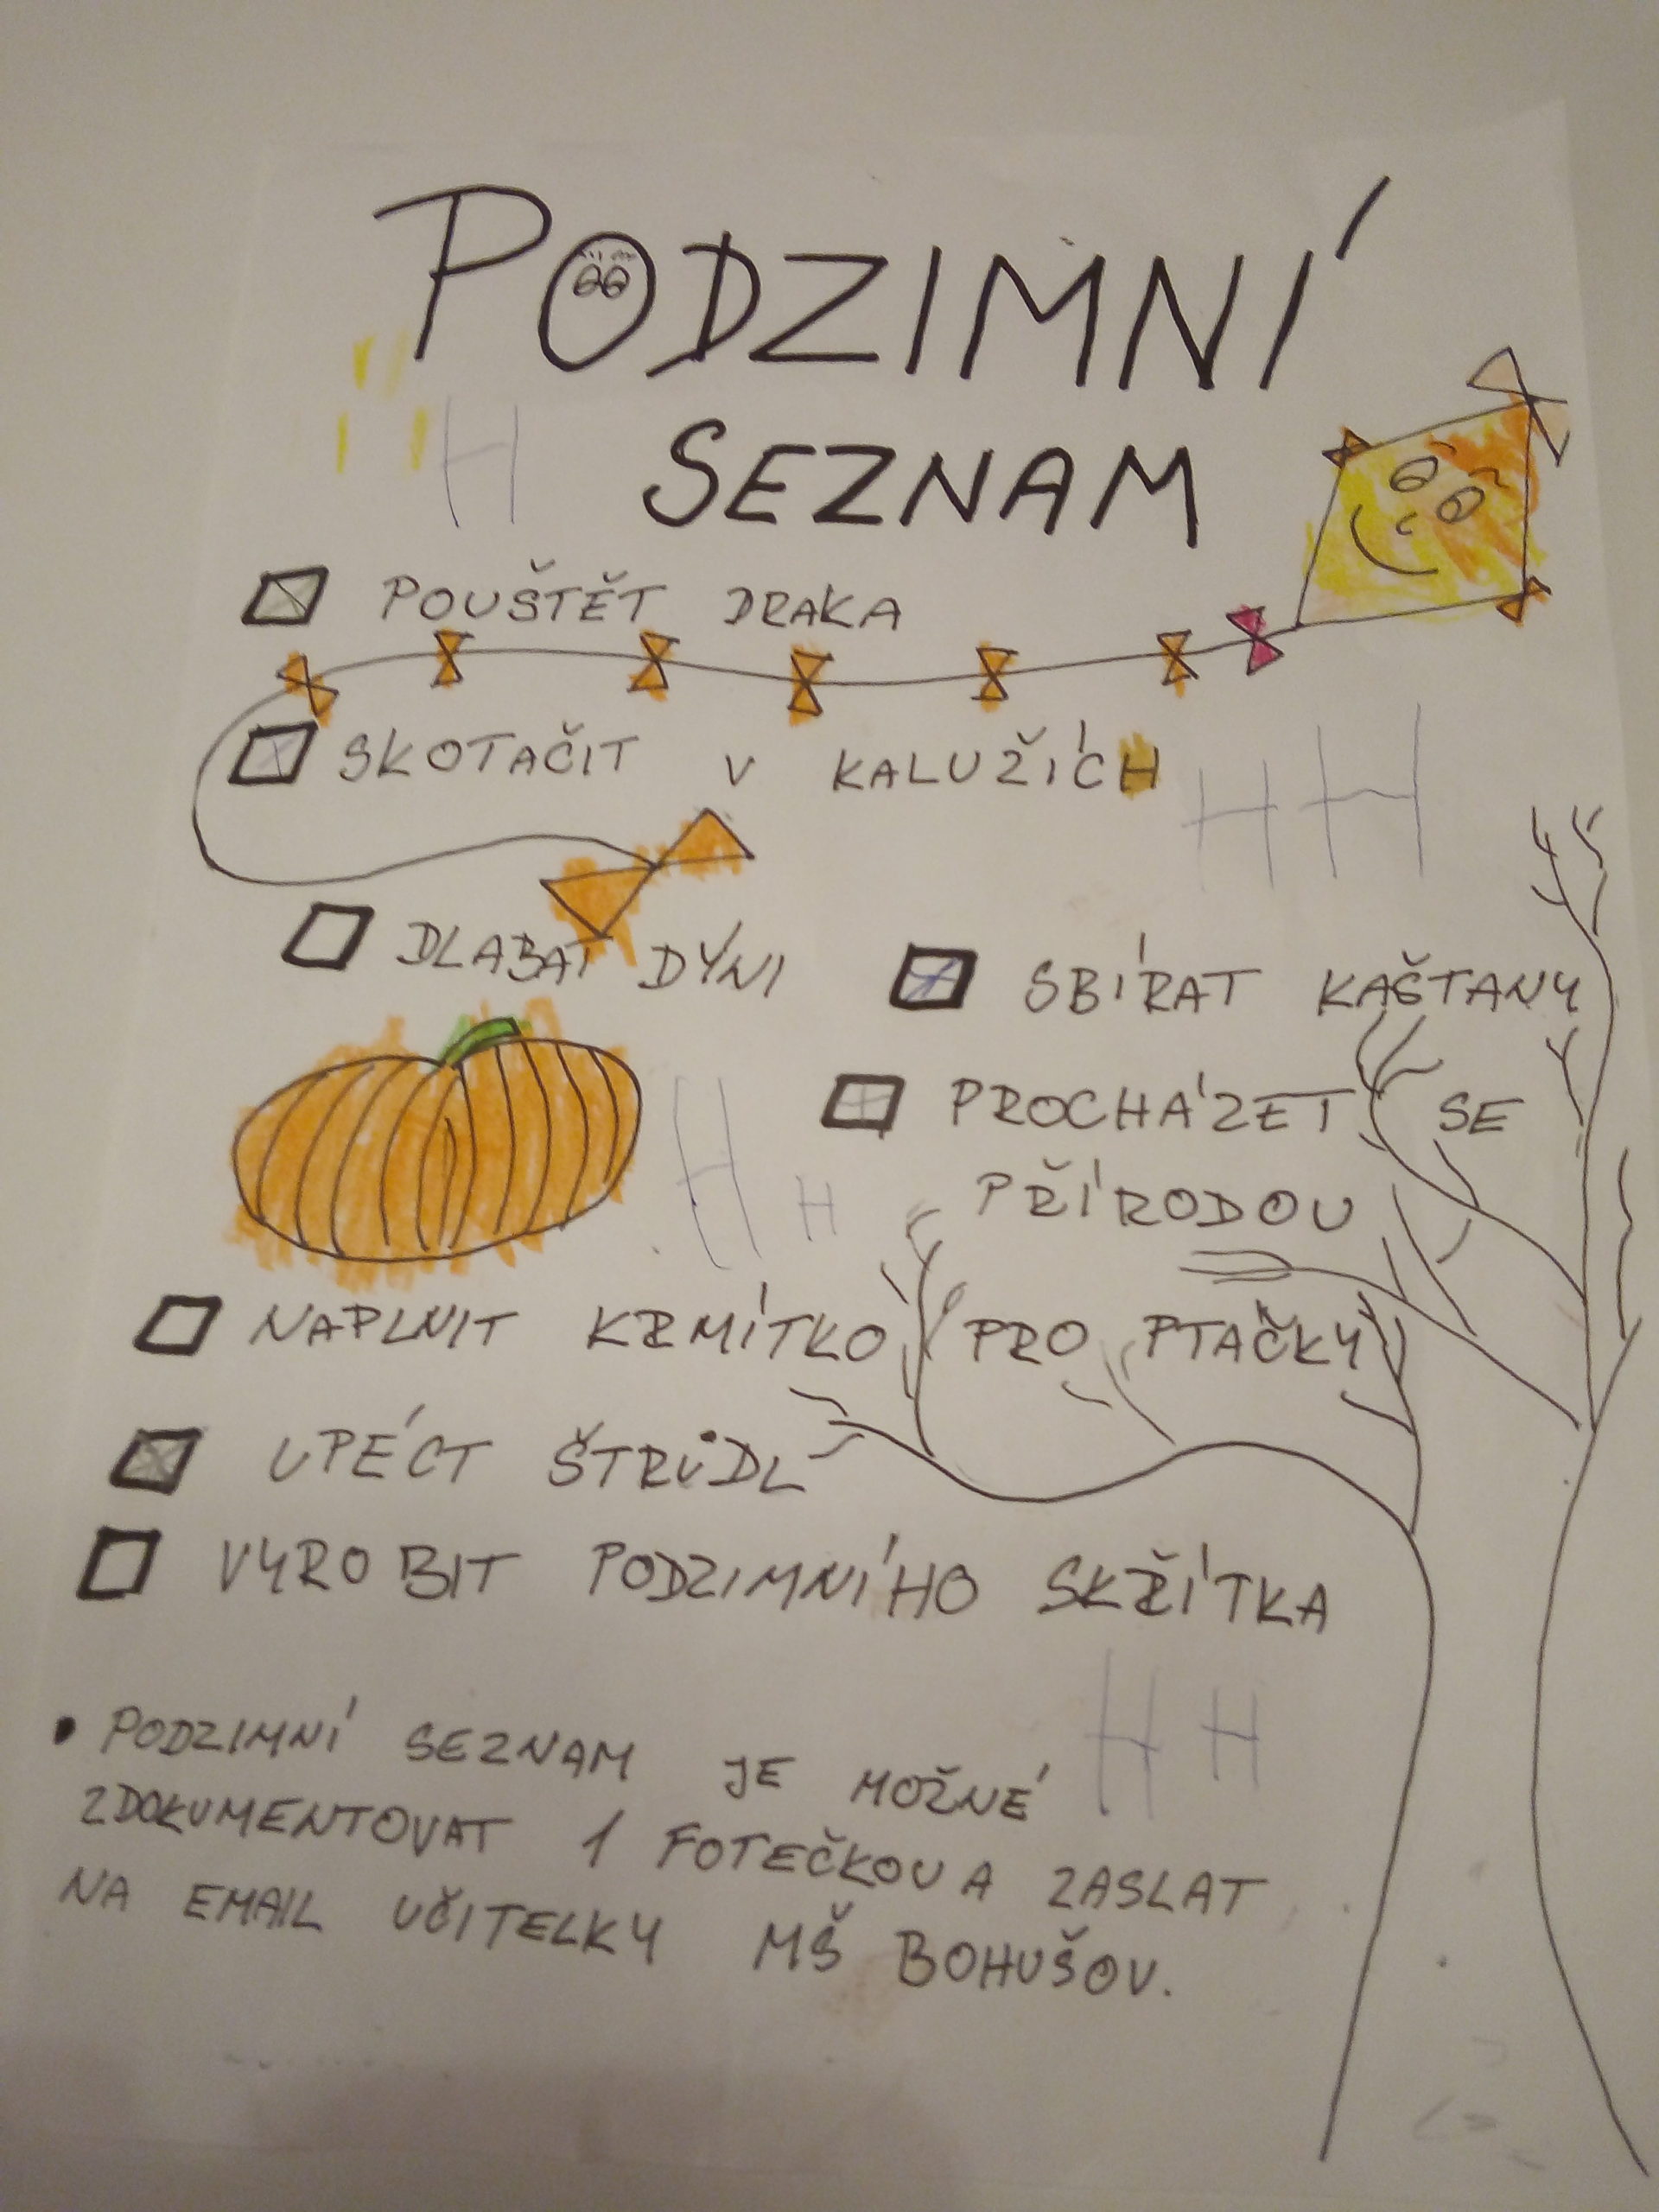 PODZIMNÍ
SEZNAM
H
POUŠTĚT DRAKA
SKOTAČIT V KALUŽÍCH
H H
DLABAT DÝNI
SBÍRAT KAŠTANY
PROCHÁZET SE
PŘÍRODOU
H H
NAPLNIT KRMÍTKO PRO PTAČKY
UPÉCT ŠTRŮDL
VYROBIT PODZIMNÍHO SKŘÍTKA
H H
• PODZIMNÍ SEZNAM JE MOŽNÉ
ZDOKUMENTOVAT 1 FOTEČKOU A ZASLAT
NA EMAIL UČITELKY MŠ BOHUŠOV.